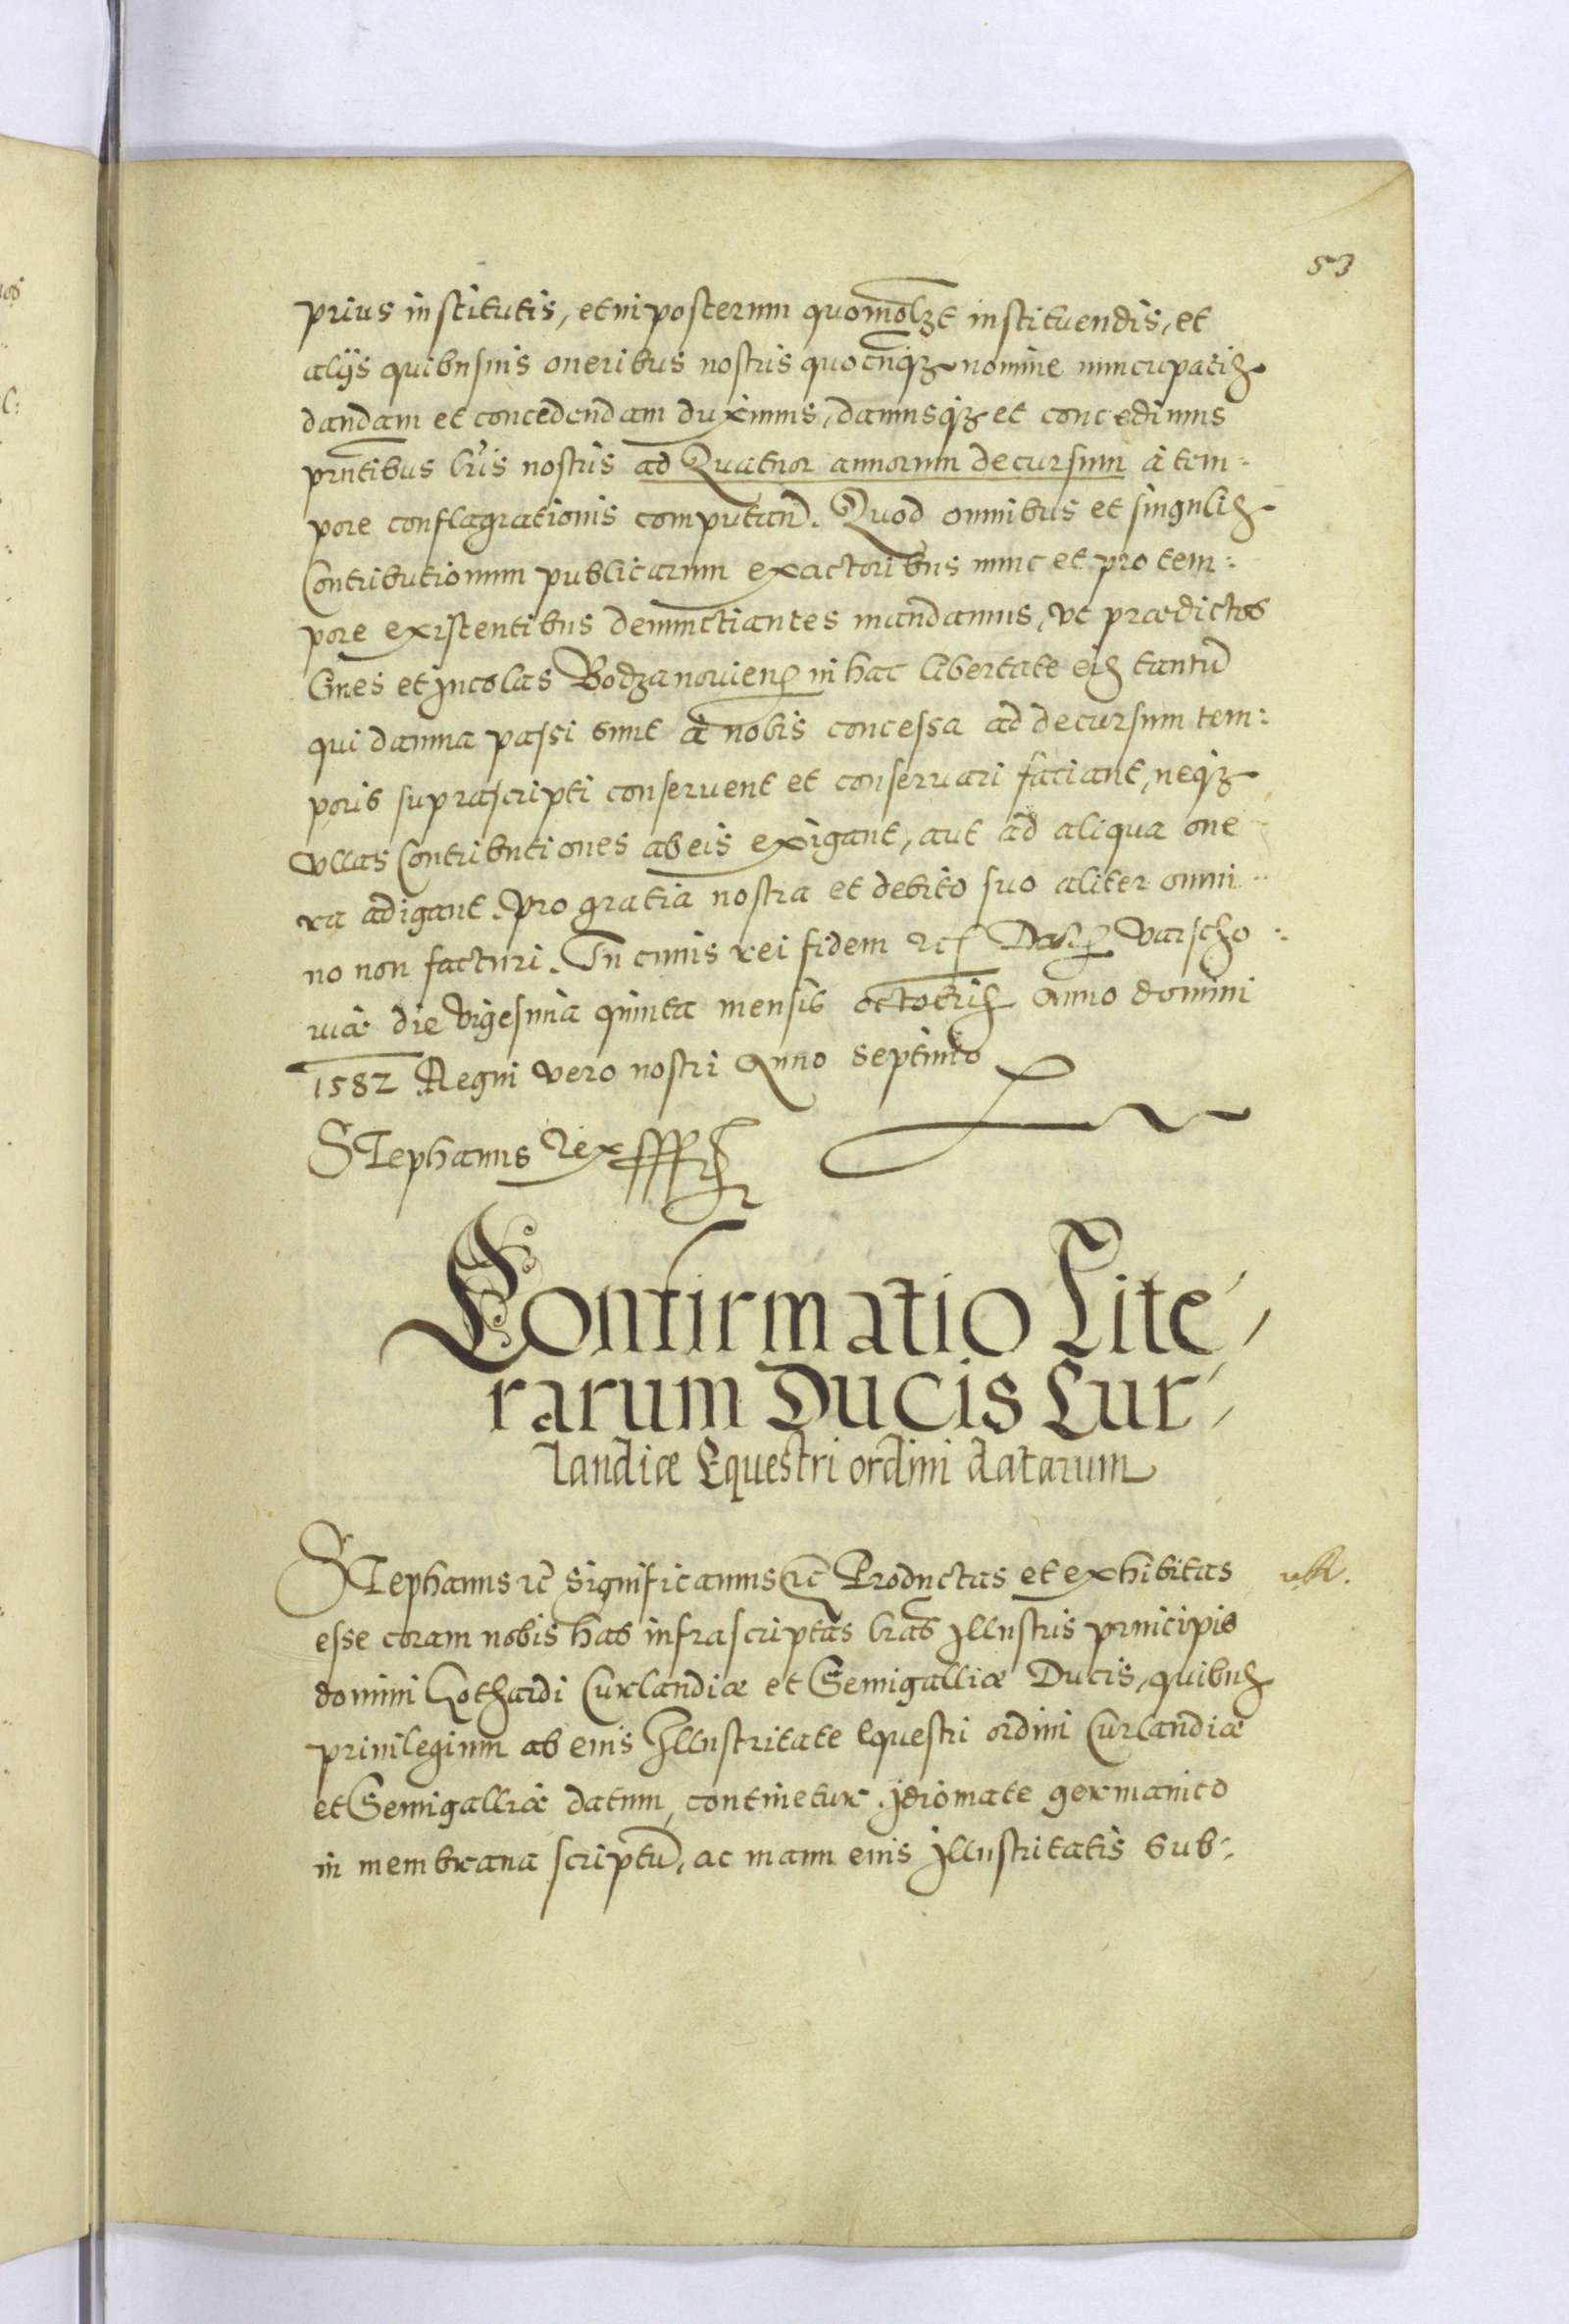 53
prius institutis, et in posterum quomolzt instituendis, et
alijs quibusuis oneribus nostris quocunqz nomine nuncupatis
dandam et concedendam duximus, damusqz et concedimus
prntibus lris nostris ad Quatuor annorum decursum à tem:
pore conflagrationis computand. Quod omnibus et singulis
Contributionum publicarum exactoribus nunc et pro tem:
pore existentibus denunctiantes mandamus, vt prædictos
Ciues et Incolas Bodzanouien in hac libertate eis tantū
qui damna passi sunt à nobis concessa ad decursum tem:
poris suprascripti conseruent et conseruari faciant, neqz
vllas Contributiones ab eis exigant, aut ad aliqua one
ra adigant. Pro gratia nostra et debito suo aliter omni
no non facturi. In cuius rei fidem etc Dat Varscho:
uiæ die vigesima quinta mensis octobris Anno domini
1582 Regni vero nostri Anno septimo
Stephanus Rex
Confirmatio Lite,
rarum Ducis Cur,
landiæ Equestri ordini datarum
Stephanus etc significamus etc Productas et exhibitas
esse coram nobis has infrascriptas lras Illustris principis
domini Gothardi Curlandiæ et Semigalliæ Ducis, quibus
priuilegium ab eius Illustritate Equestri ordini Curlandiæ
et Semigalliæ datum, continetur Idiomate germanico
in membrana scriptū, ac manu eius Illustritatis sub: